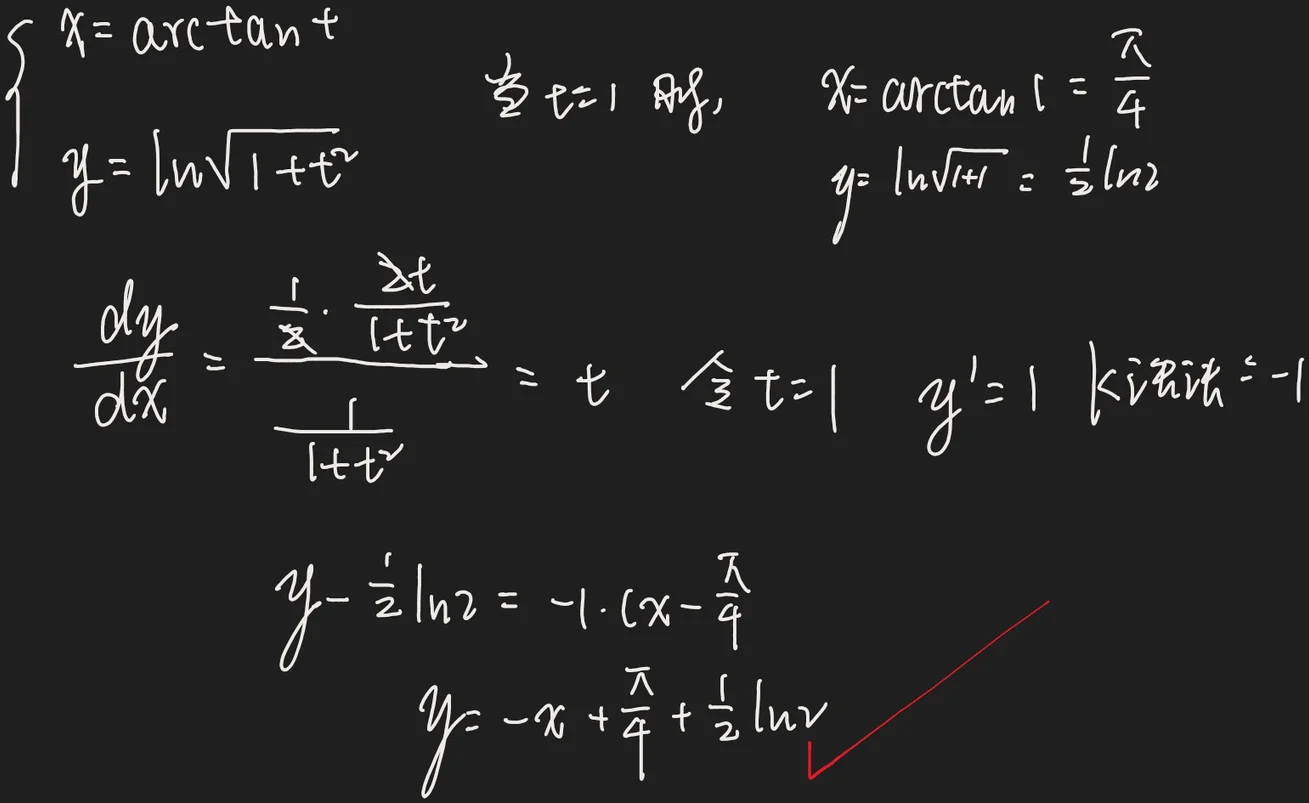 x = arctan t
y = ln√(1+t²)
当 t=1 时,
x = arctan 1 = π/4
y = ln√(1+1) = 1/2 ln2
dy/dx = (1/2 · 2t/(1+t²)) / (1/(1+t²)) = t 令 t=1 y'=1 k法线 = -1
y - 1/2 ln2 = -1·(x - π/4
y = -x + π/4 + 1/2 ln2